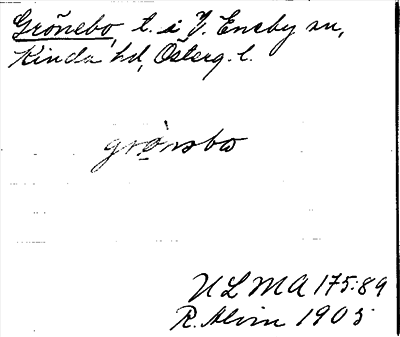 Grönebo, t. i Y. Eneby sn,
Kinda hd, Österg. l.
grö̀nsbω
ULMA 175:89
R. Alvin 1905